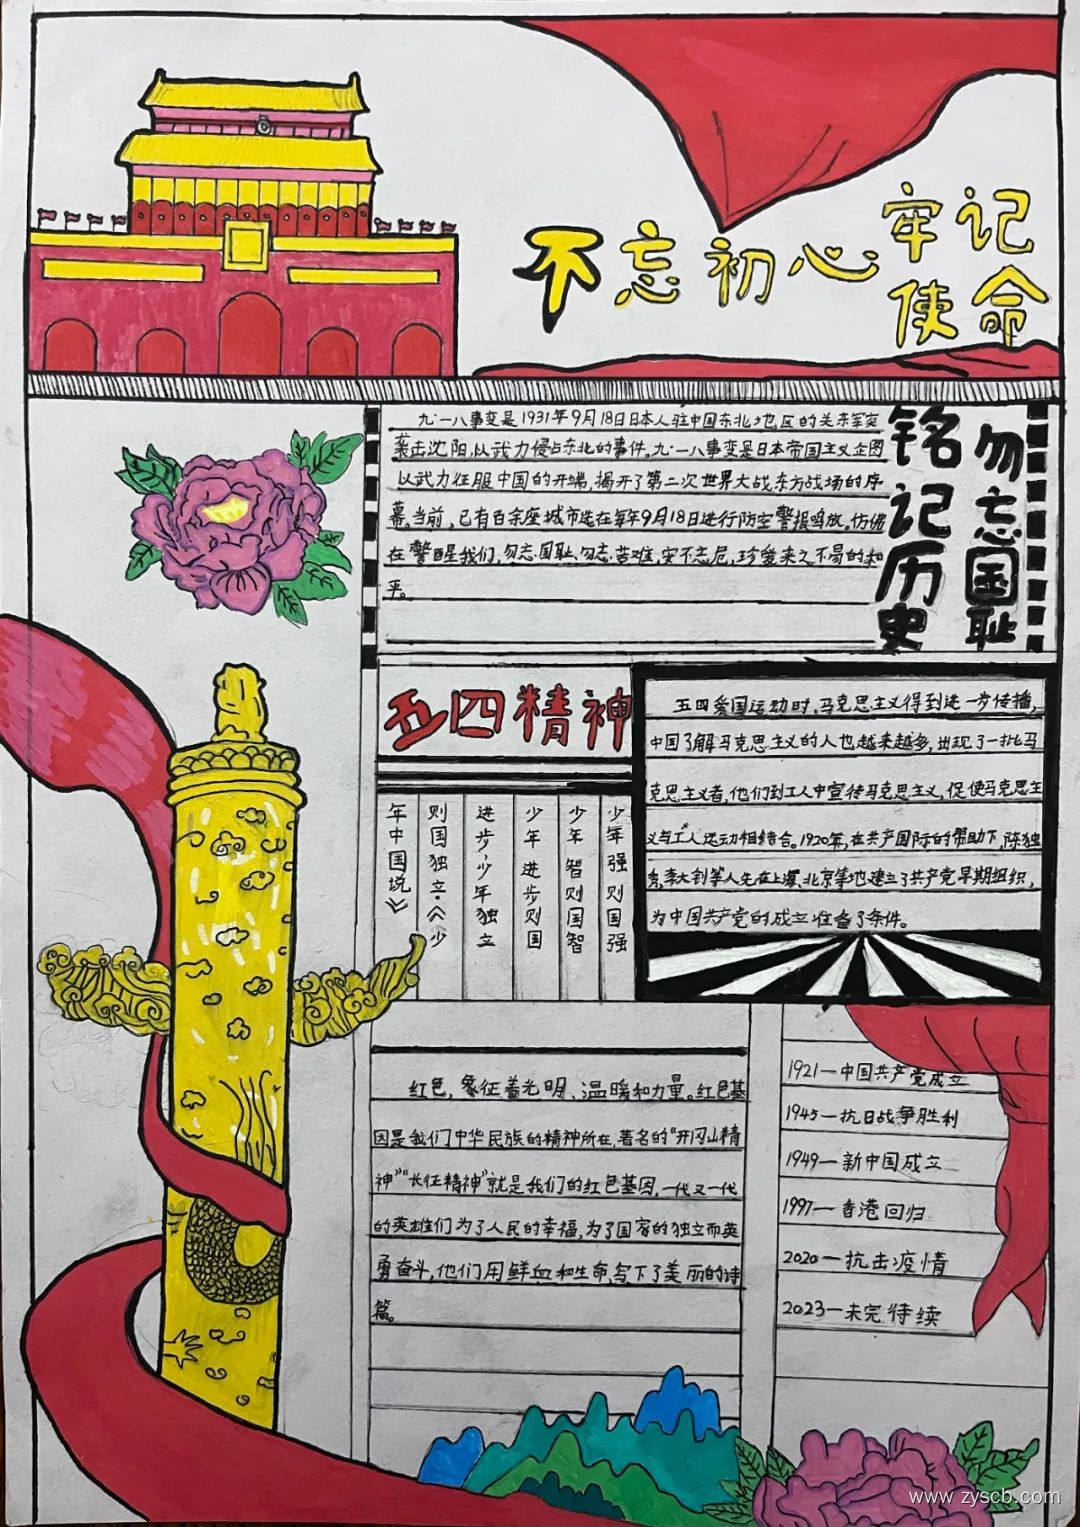 不忘初心牢记
使命
九·一八事变是1931年9月18日日本人驻中国东北地区的关东军突
袭击沈阳,从武力侵占东北的事件。九·一八事变是日本帝国主义企图
以武力征服中国的开端,揭开了第二次世界大战东方战场的序
幕。当前,已有百余座城市选在每年9月18日进行防空警报鸣放。仿佛
在警醒我们,勿忘·国耻、勿忘苦难,安不忘危,珍爱来之不易的和
平。
勿忘国耻
铭记历史
五四精神
少年强则国强
少年智则国智
少年进步则国
进步,少年独立
则国独立·《少
年中国说》
五四爱国运动时,马克思主义得到进一步传播,
中国了解马克思主义的人也越来越多,出现了一批马
克思主义者,他们到工人中宣传马克思主义,促使马克思主
义与工人运动相结合。1920年,在共产国际的帮助下,陈独
秀,李大钊等人先在上海、北京等地建立了共产党早期组织,
为中国共产党的成立准备了条件。
红色,象征着光明、温暖和力量。红色基
因是我们中华民族的精神所在,著名的"井冈山精
神""长征精神"就是我们的红色基因,一代又一代
的英雄们为了人民的幸福,为了国家的独立而英
勇奋斗,他们用鲜血和生命,写下了美丽的诗
篇。
1921—中国共产党成立
1945—抗日战争胜利
1949—新中国成立
1997—香港回归
2020—抗击疫情
2023—未完待续
www.zyscb.com